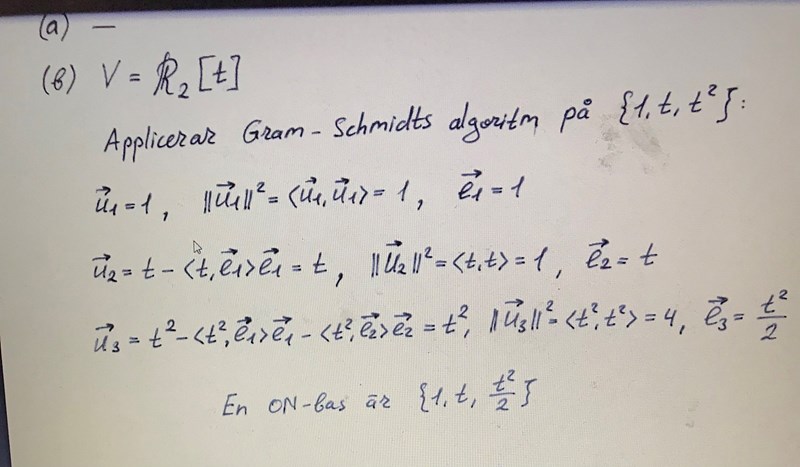 (a) —
(b) V = ℝ₂[t]
Applicerar Gram-Schmidts algoritm på {1, t, t²}:
u⃗₁ = 1, ‖u⃗₁‖² = ⟨u⃗₁, u⃗₁⟩ = 1, e⃗₁ = 1
u⃗₂ = t - ⟨t, e⃗₁⟩e⃗₁ = t, ‖u⃗₂‖² = ⟨t, t⟩ = 1, e⃗₂ = t
u⃗₃ = t² - ⟨t², e⃗₁⟩e⃗₁ - ⟨t², e⃗₂⟩e⃗₂ = t², ‖u⃗₃‖² = ⟨t², t²⟩ = 4, e⃗₃ = t²/2
En ON-bas är {1, t, t²/2}